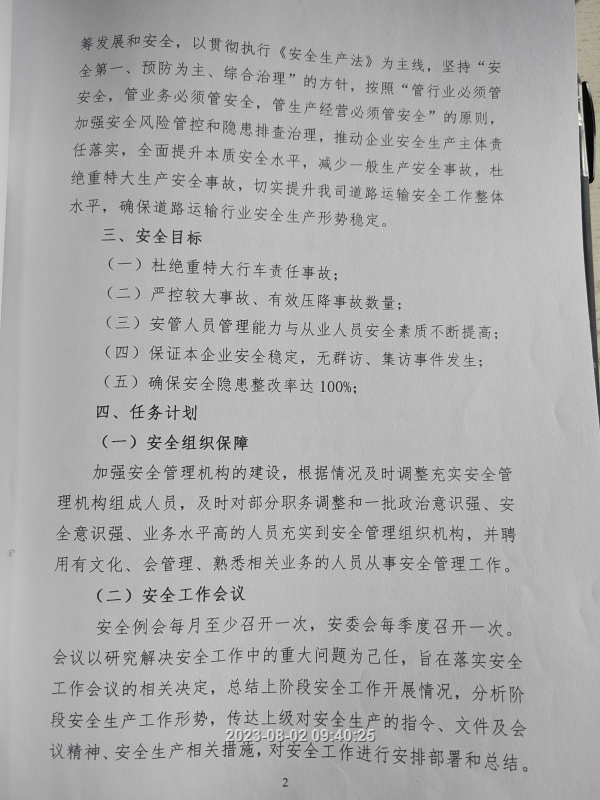 筹发展和安全，以贯彻执行《安全生产法》为主线，坚持“安
全第一、预防为主、综合治理”的方针，按照“管行业必须管
安全，管业务必须管安全，管生产经营必须管安全”的原则，
加强安全风险管控和隐患排查治理，推动企业安全生产主体责
任落实，全面提升本质安全水平，减少一般生产安全事故，杜
绝重特大生产安全事故，切实提升我司道路运输安全工作整体
水平，确保道路运输行业安全生产形势稳定。
三、安全目标
（一）杜绝重特大行车责任事故；
（二）严控较大事故、有效压降事故数量；
（三）安管人员管理能力与从业人员安全素质不断提高；
（四）保证本企业安全稳定，无群访、集访事件发生；
（五）确保安全隐患整改率达 100%；
四、任务计划
（一）安全组织保障
加强安全管理机构的建设，根据情况及时调整充实安全管
理机构组成人员，及时对部分职务调整和一批政治意识强、安
全意识强、业务水平高的人员充实到安全管理组织机构，并聘
用有文化、会管理、熟悉相关业务的人员从事安全管理工作。
（二）安全工作会议
安全例会每月至少召开一次，安委会每季度召开一次。
会议以研究解决安全工作中的重大问题为己任，旨在落实安全
工作会议的相关决定，总结上阶段安全工作开展情况，分析阶
段安全生产工作形势，传达上级对安全生产的指令、文件及会
议精神、安全生产相关措施，对安全工作进行安排部署和总结。
2023-08-02 09:40:25
2